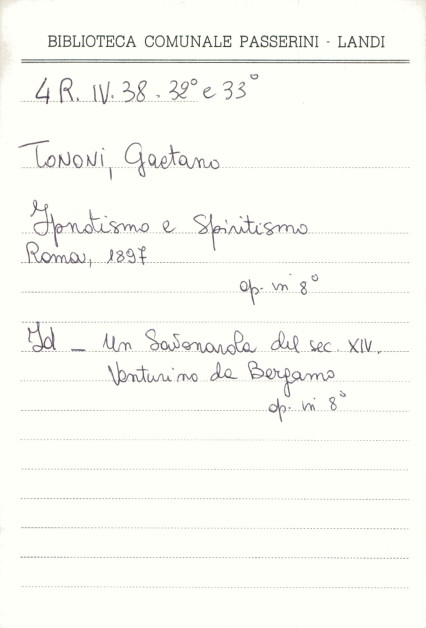 BIBLIOTECA COMUNALE PASSERINI - LANDI
4 R. IV. 38 - 32° e 33°
TONONI, Gaetano
Ipnotismo e Spiritismo
Roma, 1897
op. in 8°
Id - Un Savonarola del sec. XIV.
Venturino da Bergamo
op. in 8°